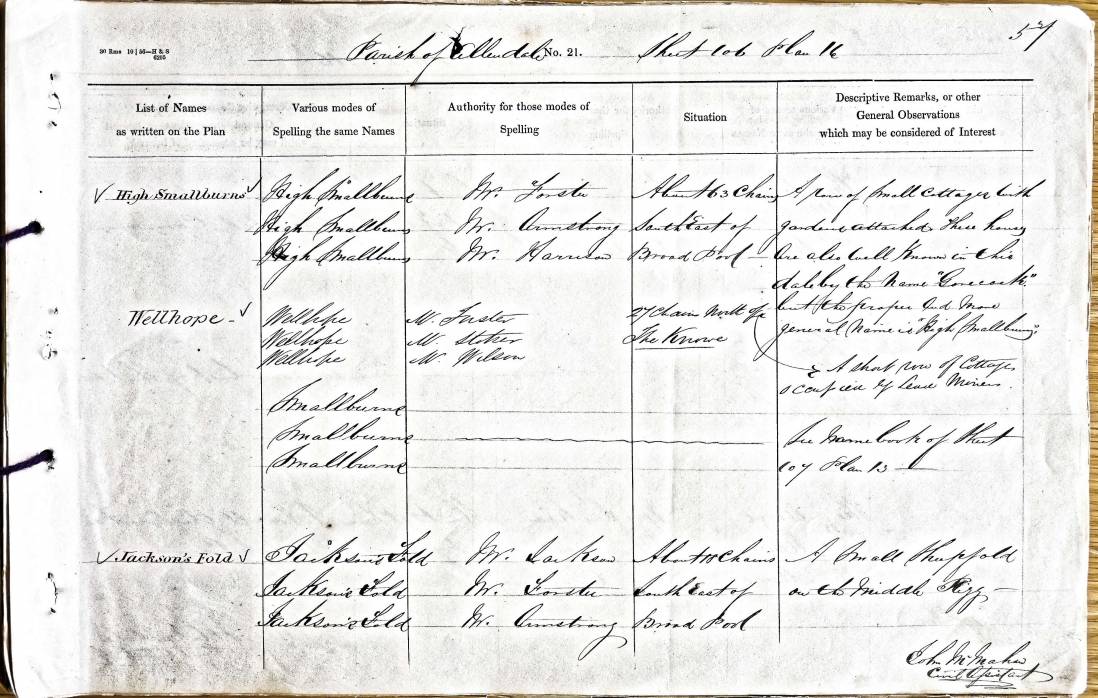 30 Rms 10 | 56—H & S
6205
Parish of Allendale No. 21. Sheet 106 Plan 16
57
List of Names
as written on the Plan
Various modes of
Spelling the same Names
Authority for those modes of
Spelling
Situation
Descriptive Remarks, or other
General Observations
which may be considered of Interest
High Smallburns
High Smallburns
High Smallburns
High Smallburns
Mr. Forster
Mr. Armstrong
Mr. Harrison
About 63 Chains
South East of
Broad Pool
A row of small Cottages with
gardens attached. These houses
are also well known in this
dale by the Name
but the proper and More
general Name is "High Smallburns"
Wellhope
Wellhope
Wellhope
Wellhope
Mr. Forster
Mr.
Mr. Wilson
27 Chains North of
The Knowe
A short row of Cottages
occupied by Lead Miners.
Smallburns
Smallburns
Smallburns
See Name book of Sheet
107 Plan 13
Jackson's Fold
Jackson's Fold
Jackson's Fold
Jackson's Fold
Mr. Jackson
Mr. Forster
Mr. Armstrong
About 18 Chains
South East of
Broad Pool
A Small Sheepfold
on the Middle Rigg
John McMahon
Civil Assistant